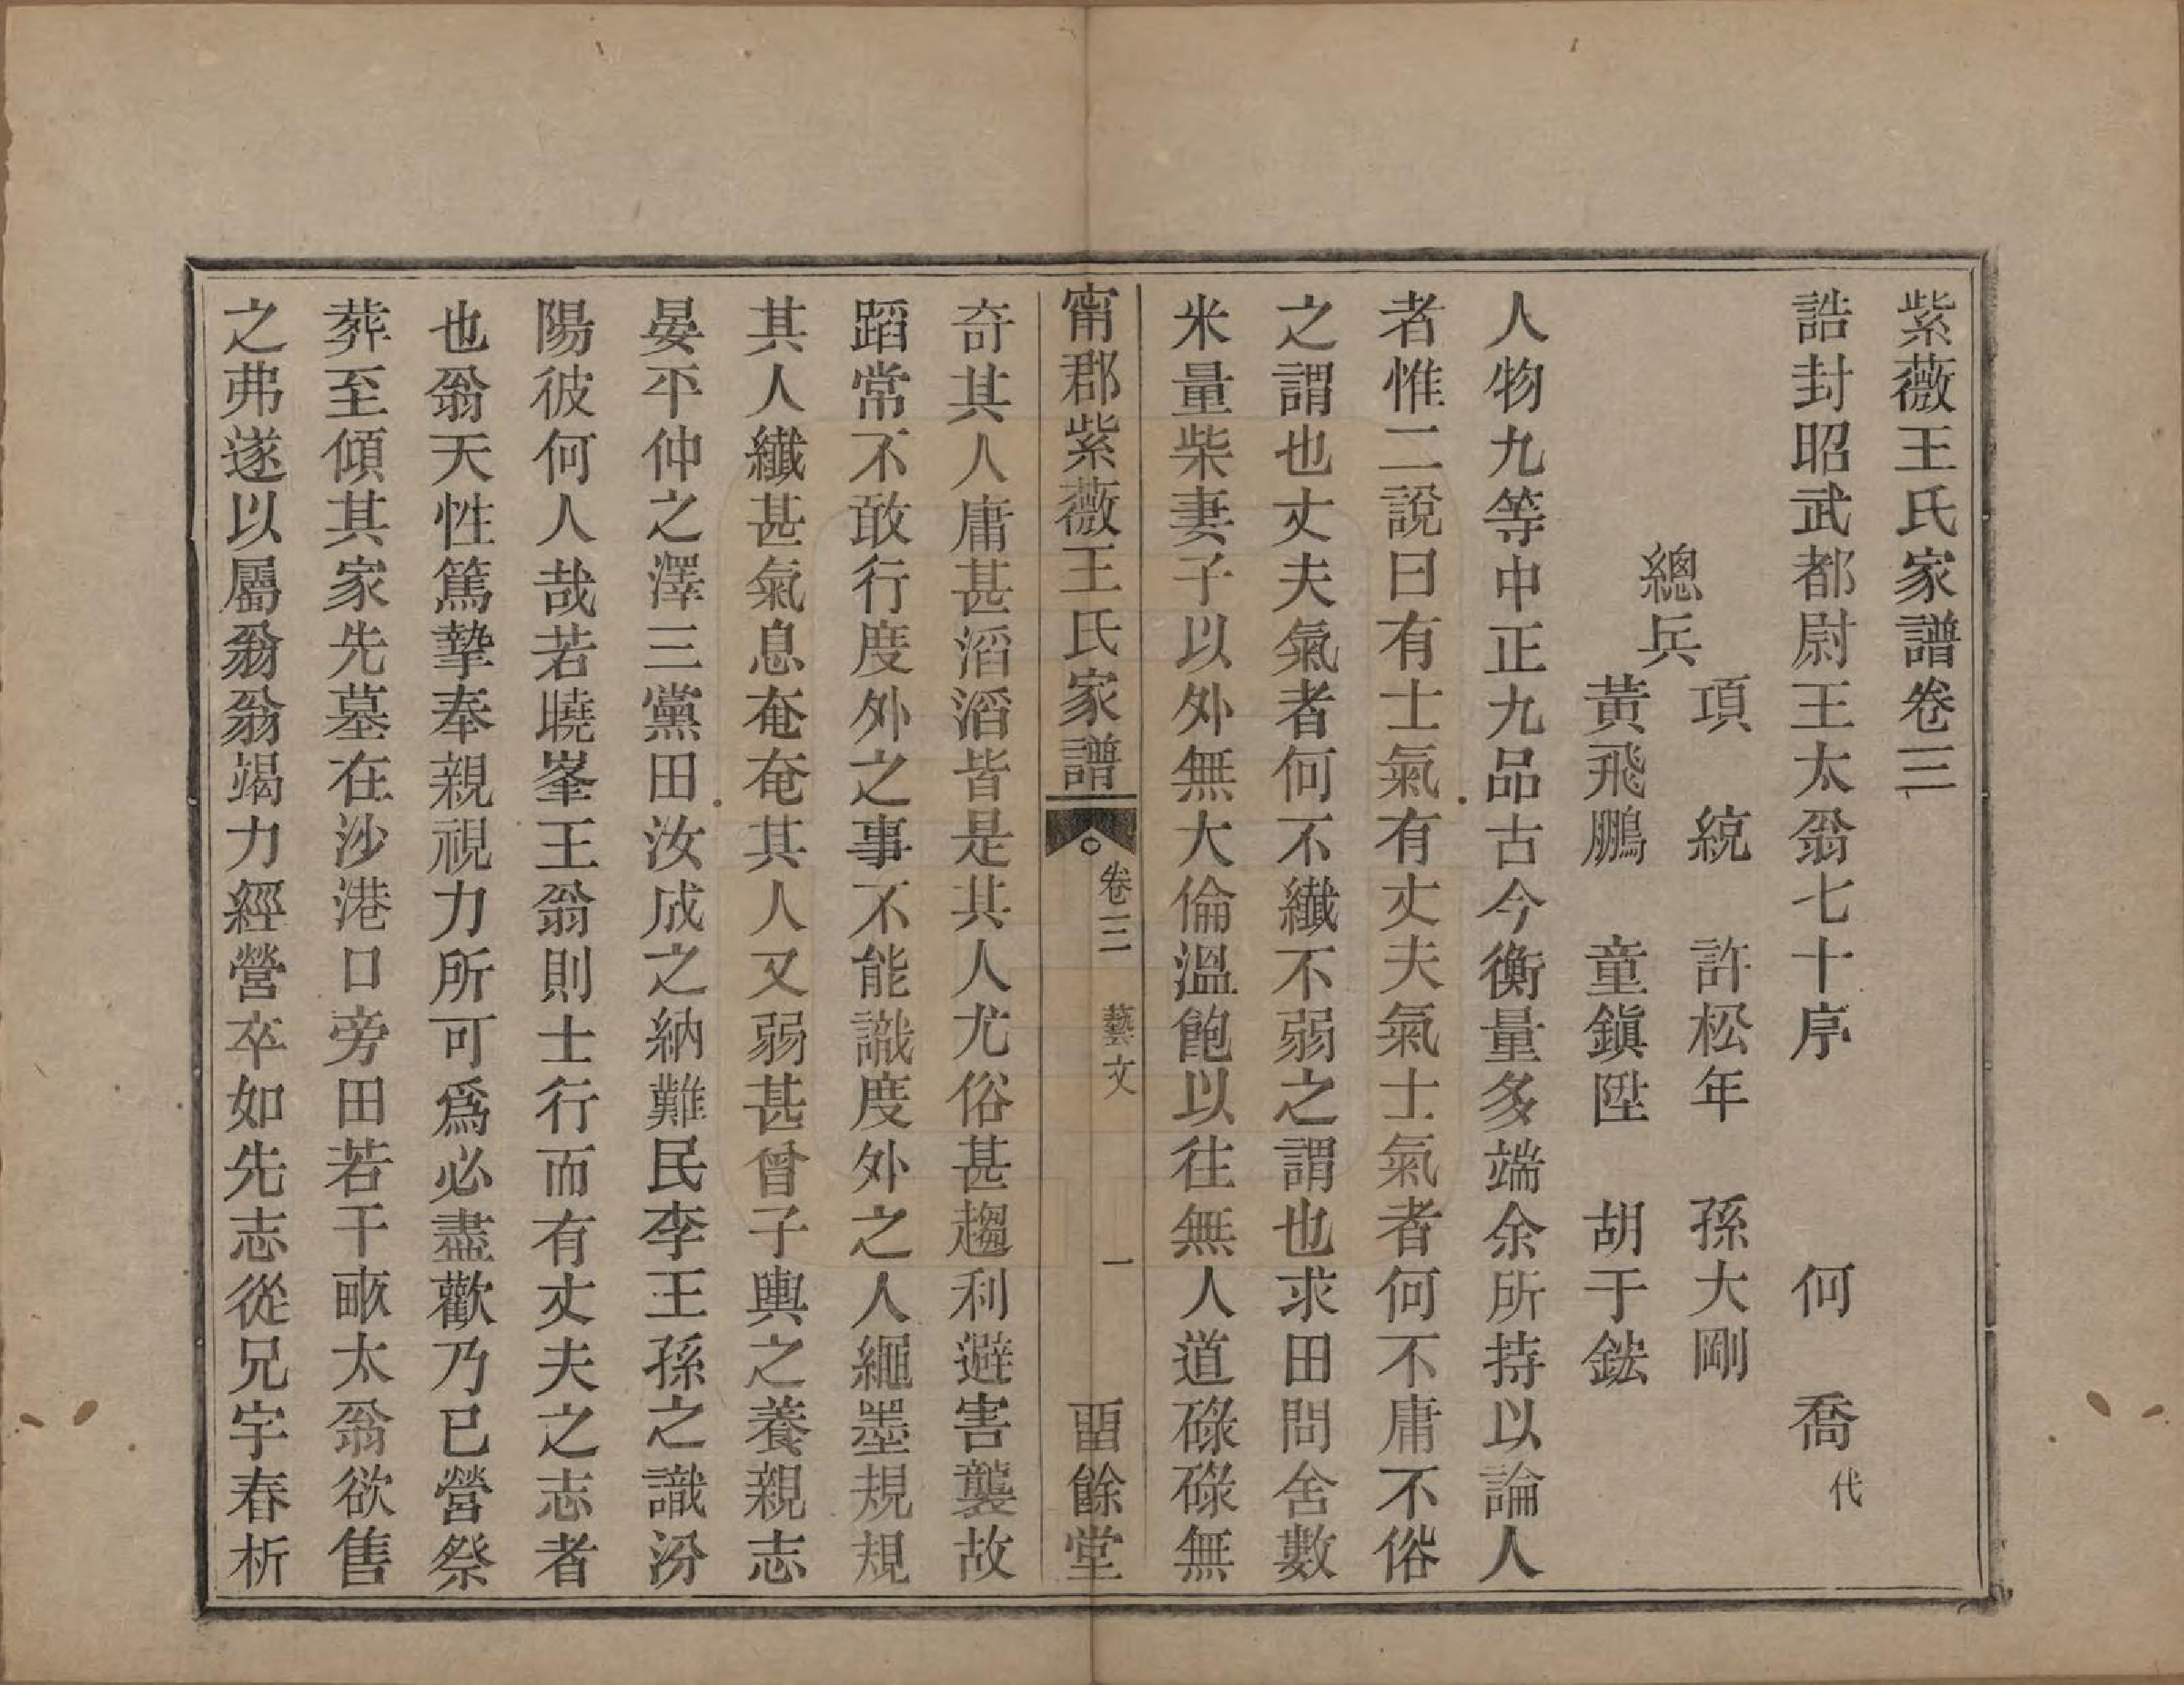 紫薇王氏家譜卷三
誥封昭武都尉王太翁七十序　何喬代
總兵
項統　許松年　孫大剛
黃飛鵬　童鎮陞　胡于鋐
人物九等中正九品古今衡量多端余所持以論人
者惟二說曰有士氣有丈夫氣士氣者何不庸不俗
之謂也丈夫氣者何不纖不弱之謂也求田問舍數
米量柴妻子以外無大倫溫飽以往無人道碌碌無
甯郡紫薇王氏家譜　卷三　藝文　一　畱餘堂
奇其人庸甚滔滔皆是其人尤俗甚趨利避害襲故
蹈常不敢行度外之事不能識度外之人繩墨規規
其人纖甚氣息奄奄其人又弱甚曾子輿之養親志
晏平仲之澤三黨田汝成之納難民李王孫之識汾
陽彼何人哉若曉峯王翁則士行而有丈夫之志者
也翁天性篤摯奉親視力所可爲必盡歡乃已營祭
葬至傾其家先墓在沙港口旁田若干畝太翁欲售
之弗遂以屬翁翁竭力經營卒如先志從兄宇春析